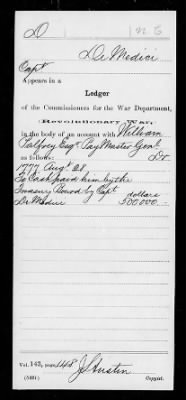 D | N. C.
De Medici
Capt
Appears in a
Ledger
of the Commissioners for the War Department,
(Revolutionary War,)
in the body of an account with William
Palfrey Esqr. Pay Master Genl.
as follows: Dr.
1777 Augt. 28.
To Cash paid him by the
Treasury Board by Capt
dollars
De Medici 500.000.—
Vol. 143, page 148
J S Austin
(546f) Copyist.